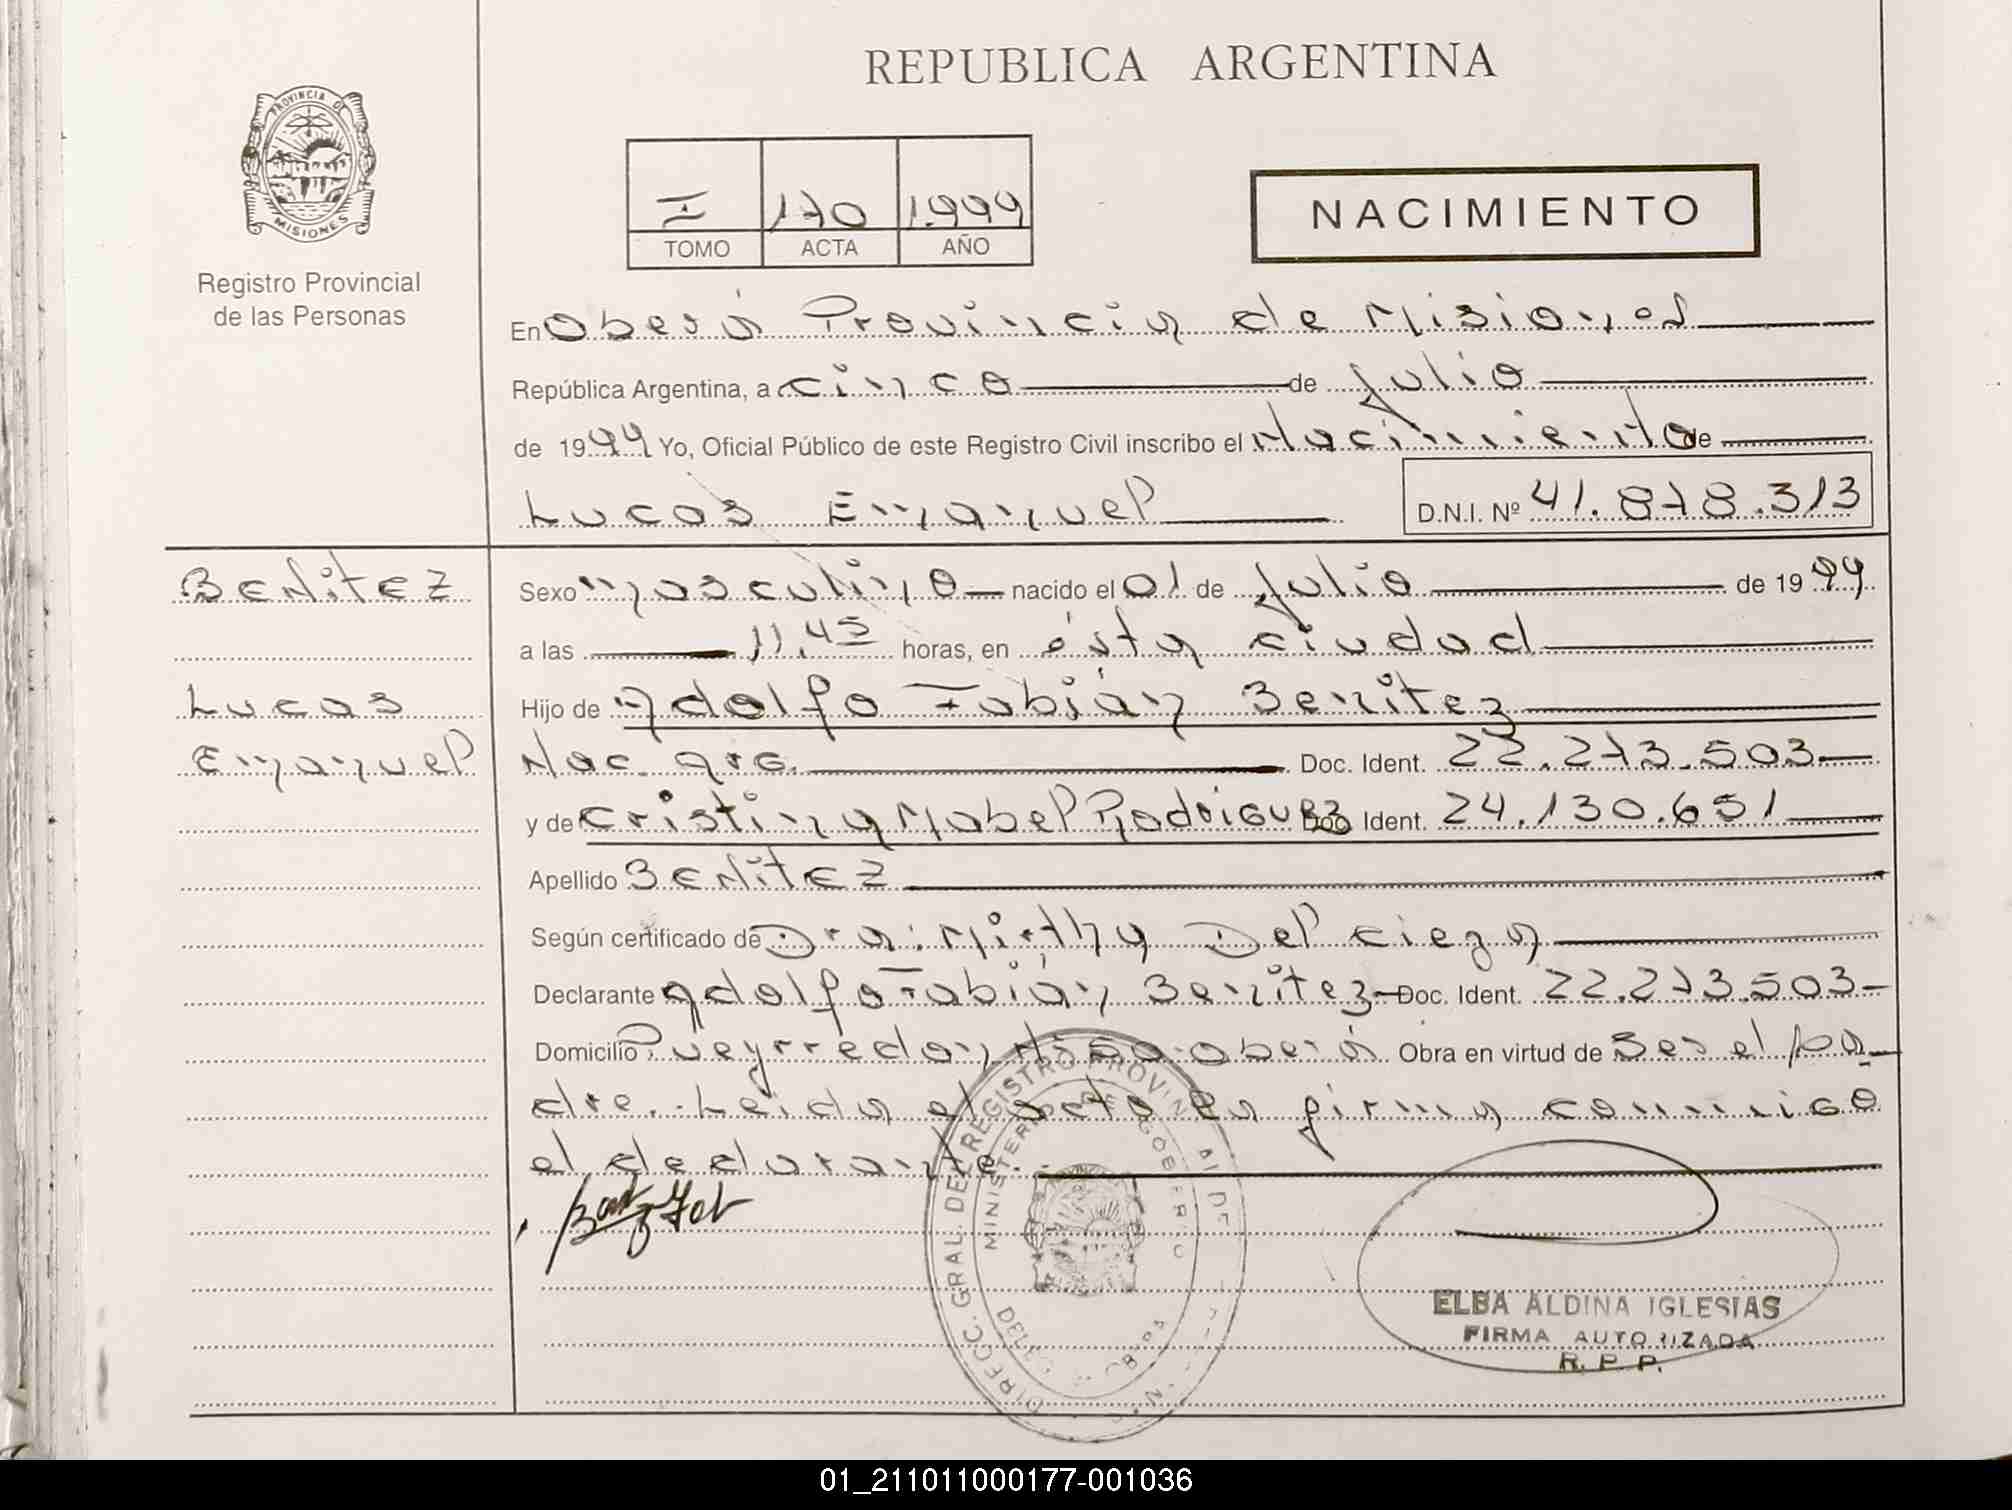 REPUBLICA ARGENTINA
PROVINCIA DE
MISIONES
Registro Provincial
de las Personas
I 170 1.999
TOMO ACTA AÑO
NACIMIENTO
En Oberá Provincia de Misiones
República Argentina, a cinco de Julio
de 1999 Yo, Oficial Público de este Registro Civil inscribo el Nacimiento de
Lucas Emanuel D.N.I. Nº 41.878.313
BENITEZ
Lucas
Emanuel
Sexo masculino nacido el 01 de Julio de 1999
a las 11,45 horas, en ésta ciudad
Hijo de Adolfo Fabián Benitez
Nac. arg. Doc. Ident. 22.273.503
y de Cristina Mabel Rodriguez Doc. Ident. 24.130.651
Apellido BENITEZ
Según certificado de Dra: Mirtha Del
Declarante Adolfo Fabián Benitez Doc. Ident. 22.273.503
Domicilio Pueyrredon Oberá Obra en virtud de Ser el pa-
dre. Leida el acta la firma conmigo
el declarante.
DIRECC. GRAL. DEL REGISTRO PROVIN
MINISTERIO DE GOBIERNO
ELBA ALDINA IGLESIAS
FIRMA AUTORIZADA
R. P. P.
01_211011000177-001036